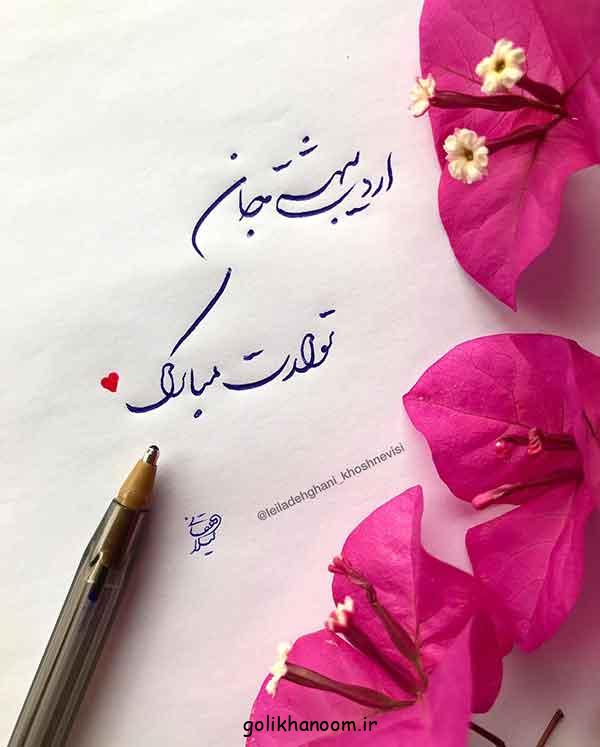 اردیبهشتی جان
تولدت مبارک
@leiladehghani_khoshnevisi
لیلا دهقانی
golikhanoom.ir